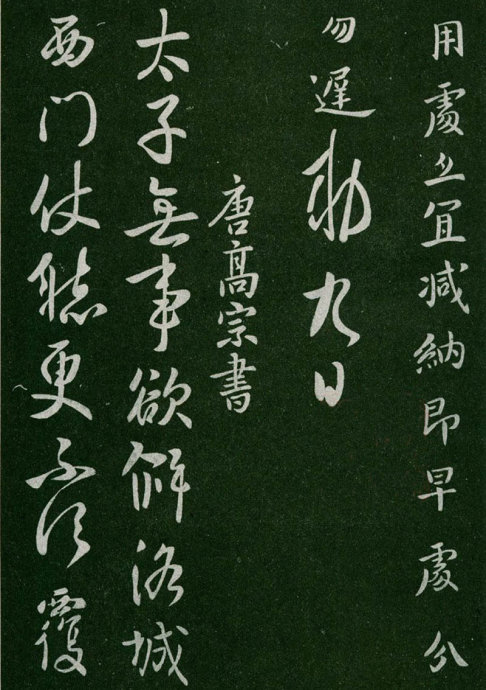 用處宜减納即早處分
勿遲勅九日
唐髙宗書
太子無事欲解洛城
西門仗聽更不須覆